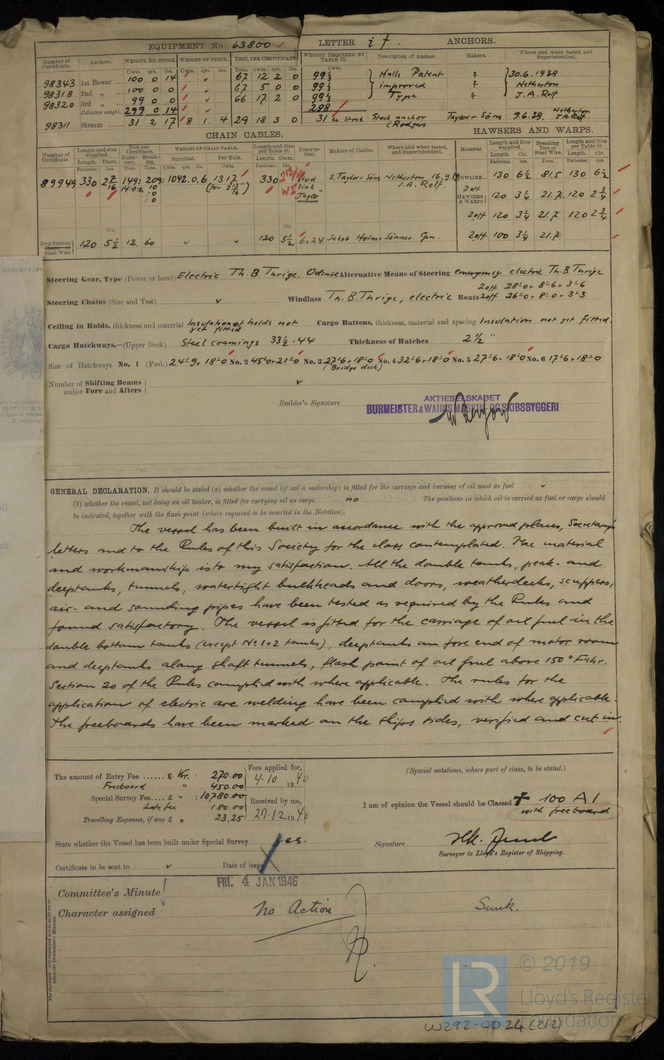 EQUIPMENT No. 63800 LETTER it. ANCHORS.
Number of Certificate. Anchors. WEIGHT, EX. STOCK WEIGHT OF STOCK. TEST, PER CERTIFICATE. WEIGHT REQUIRED BY TABLE 22. Description of Anchor. Makers. Where and when tested and Superintendent.
98343 1st Bower 100 0 14 67 12 2 0 99½ Halls Patent 30.6.1939
98318 2nd 100 0 0 67 5 0 0 99½ improved Netherton
98320 3rd 99 0 0 66 17 2 0 99½ Type J.A. Relf
(Collective weight) 299 0 14 298
98311 Stream 31 2 17 8 1 4 29 18 3 0 31 ex stock Stock anchor (Rodgers Taylor & Sons 9.6.39. Netherton J.A. Relf
CHAIN CABLES. HAWSERS AND WARPS.
Number of Certificate Length and size supplied. Test per Certificate. WEIGHT OF CHAIN CABLE. Length and size per Table 22. Description. Makers of Cables. Where and when tested, and Superintendent. Material Length and Size supplied. Breaking Test of Steel Wire. Length and Size per Table 22.
89949 330 1042.0.6 1317 330 Stud link S. Taylor & Sons Netherton 16.9. J.A. Relf. TOWLINE 130 6½ 81.5 130 6½
HAWSERS & WARPS 120 3¼ 21.7 120 2¾
2 off 120 3¼ 21.7 120 2¾
Iron Stream Chain or Steel Wire 120 5½ 12.60 120 5½ 6×24 Jakob Holms Sönner Cpn. 2 off 100 3¼ 21.7
Steering Gear, Type (Power or hand) Electric Th. B. Thrige, Odense Alternative Means of Steering emergency electric Th. B. Thrige
Steering Chains (Size and Test) Windlass Th. B. Thrige, electric Boats 2 off 28'0 × 8'6 × 3'6 2 off 26'0 × 8'0 × 3'3
Ceiling in Holds, thickness and material Insulation of holds not yet fitted Cargo Battens, thickness, material and spacing Insulation not yet fitted.
Cargo Hatchways.—(Upper Deck) Steel coamings 33½ .44 Thickness of Hatches 2½"
Size of Hatchways No. 1 (Fwd.) 24'9 × 18'0 No. 2 45'0 × 21'0 No. 3 27'6 × 18'0 (Bridge deck) No. 4 32'6 × 18'0 No. 5 27'6 × 18'0 No. 6 17'6 × 18'0
Number of Shifting Beams and/or Fore and Afters
Builder's Signature AKTIESELSKABET
BURMEISTER & WAIN'S MASKIN- OG SKIBSBYGGERI
GENERAL DECLARATION. It should be stated (a) whether the vessel (if not a motorship) is fitted for the carriage and burning of oil used as fuel
(b) whether the vessel, not being an oil tanker, is fitted for carrying oil as cargo no The positions in which oil is carried as fuel or cargo should
be indicated, together with the flash point (where required to be inserted in the Notation).
The vessel has been built in accordance with the approved plans, Secretary's
letters and to the Rules of this Society for the class contemplated. The material
and workmanship is to my satisfaction. All the double tanks, peak- and
deeptanks, tunnels, watertight bulkheads and doors, weatherdecks, scuppers,
air- and sounding pipes have been tested as required by the Rules and
found satisfactory. The vessel is fitted for the carriage of oil fuel in the
double bottom tanks (except No 1+2 tanks), deeptanks on fore end of motor room
and deeptanks along shaft tunnels, flash point of oil fuel above 150° Fahr.
Section 20 of the Rules complied with where applicable. The rules for the
application of electric arc welding have been complied with where applicable.
The freeboards have been marked on the ships sides, verified and cut in.
The amount of Entry Fee ...... Kr. 270.00 Fees applied for,
Freeboard " 450.00 4.10 1940
Special Survey Fee.... " 10780.00 Received by me,
Late fee 180.00 27.12 1940
Travelling Expenses, if any £ " 23.25
(Special notations, where part of class, to be stated.)
I am of opinion the Vessel should be Classed ✠ 100 A1
with freeboard
State whether the Vessel has been built under Special Survey yes. Signature
Surveyor to Lloyd's Register of Shipping.
Certificate to be sent to Date of issue
FRI. 4 JAN 1946
Committee's Minute
Character assigned No Action Sunk.
© 2019
LR Lloyd's Register
Foundation
W292-0024 (2/2)